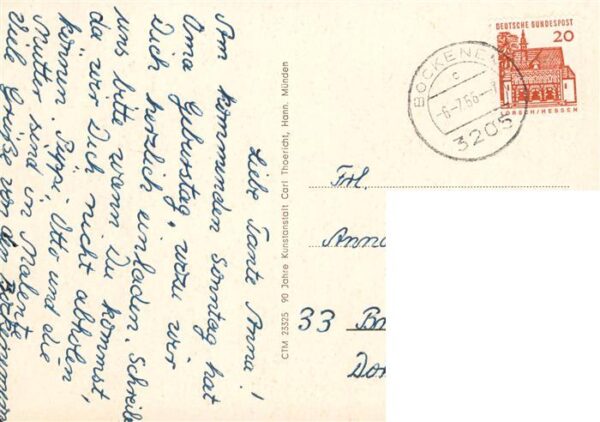 Liebe Tante Anna!
Am kommenden Sonntag hat
Oma Geburtstag, wozu wir
Dich herzlich einladen. Schreibe
uns bitte wann Du kommst,
da wir Dich nicht abholen
können. Otto und die
Mutter sind in Malente
Viele Grüße von den
CTM 23325 90 Jahre Kunstanstalt Carl Thoericht, Hann. Münden
DEUTSCHE BUNDESPOST
20
LORSCH/HESSEN
BOCKENEM
c
-6.-7.66.-
3205
Frl.
Anna
33 B
Do